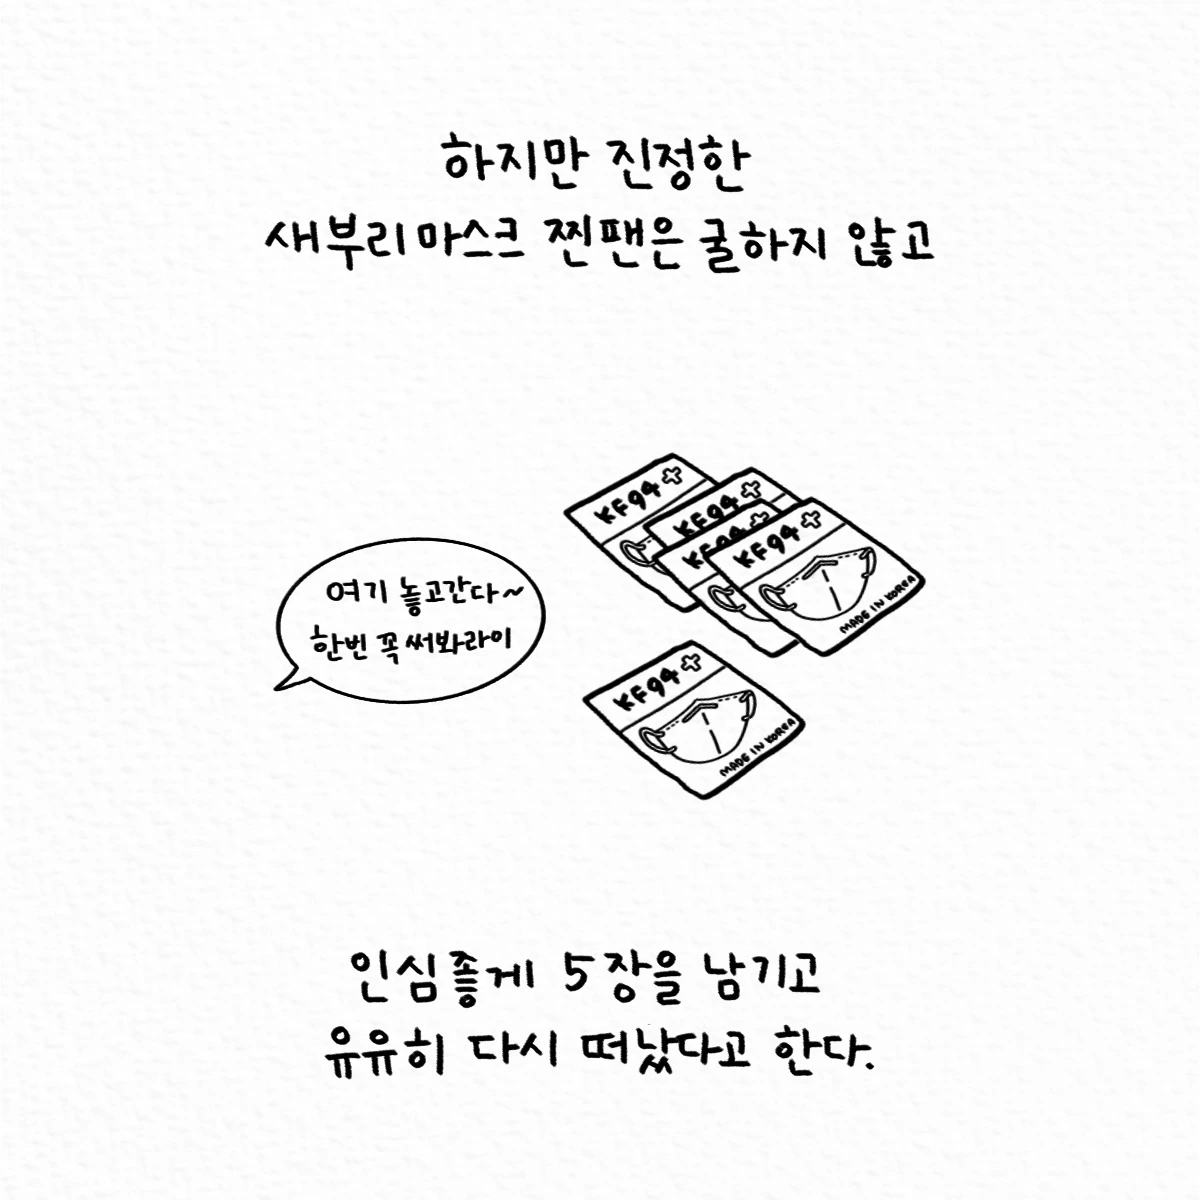 하지만 진정한
새부리마스크 찐팬은 굴하지 않고
KF94
KF94
KF94
KF94
MADE IN KOREA
여기 놓고간다~
한번 꼭 써봐라이
KF94
MADE IN KOREA
인심좋게 5장을 남기고
유유히 다시 떠났다고 한다.